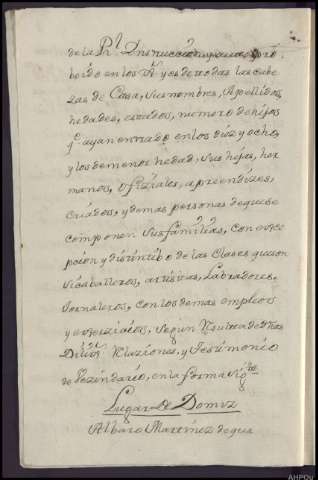 de la Rl. Instruccion, para
beido en los Vs. y es de todas las cabe
zas de Casa, sus nombres, Apellidos,
hedades, estados, numero de hijos
qe. ayan entrado en los diez y ocho,
y los de menor hedad, sus hijas, her
manos, ofiziales, aprendizes,
criados, y demas personas de que se
componen sus familias, con expre
cion y distintibo de las Clases que son
si caballeros, artistas, Labradores,
Jornaleros, con los demas empleos
y exerzicios, segun
Relaziones, y Testimonio
de Vezindario, en la forma sigte.
Lugar de Domiz
Albaro Martinez de que
AHPOu